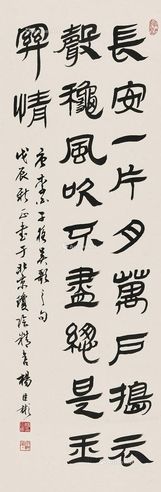 長安一片月萬戶擣衣
聲穐風吹不盡總是玉
關情
唐李白子夜吳歌之句
戊辰新正書于北京瓊音精舍楊